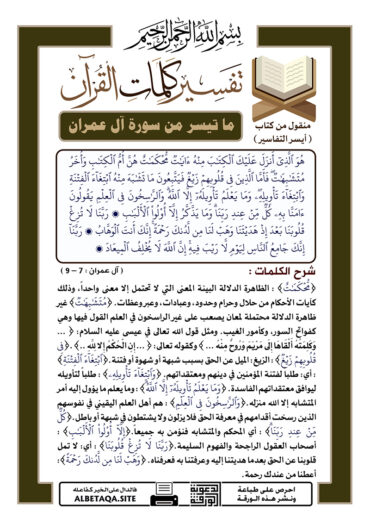 بسم الله الرحمن الرحيم
تفسير كلمات القرآن
منقول من كتاب
( أيسر التفاسير )
ما تيسر من سورة آل عمران
هُوَ الَّذِي أَنزَلَ عَلَيْكَ الْكِتَابَ مِنْهُ آيَاتٌ مُّحْكَمَاتٌ هُنَّ أُمُّ الْكِتَابِ وَأُخَرُ
مُتَشَابِهَاتٌ فَأَمَّا الَّذِينَ فِي قُلُوبِهِمْ زَيْغٌ فَيَتَّبِعُونَ مَا تَشَابَهَ مِنْهُ ابْتِغَاءَ الْفِتْنَةِ
وَابْتِغَاءَ تَأْوِيلِهِ وَمَا يَعْلَمُ تَأْوِيلَهُ إِلَّا اللَّهُ وَالرَّاسِخُونَ فِي الْعِلْمِ يَقُولُونَ
آمَنَّا بِهِ كُلٌّ مِّنْ عِندِ رَبِّنَا وَمَا يَذَّكَّرُ إِلَّا أُولُو الْأَلْبَابِ ۞ رَبَّنَا لَا تُزِغْ
قُلُوبَنَا بَعْدَ إِذْ هَدَيْتَنَا وَهَبْ لَنَا مِن لَّدُنكَ رَحْمَةً إِنَّكَ أَنتَ الْوَهَّابُ ۞ رَبَّنَا
إِنَّكَ جَامِعُ النَّاسِ لِيَوْمٍ لَّا رَيْبَ فِيهِ إِنَّ اللَّهَ لَا يُخْلِفُ الْمِيعَادَ ۞
شرح الكلمات : ( آل عمران : 7 – 9 )
﴿مُّحْكَمَاتٌ﴾ : الظاهرة الدلالة البينة المعنى التي لا تحتمل إلا معنى واحداً، وذلك
كآيات الأحكام من حلال وحرام وحدود، وعبادات، وعبر وعظات. ﴿مُتَشَابِهَاتٌ﴾ غير
ظاهرة الدلالة محتملة لمعان يصعب على غير الراسخون في العلم القول فيها وهي
كفواتح السور، وكأمور الغيب. ومثل قول الله تعالى في عيسى عليه السلام: ﴿ ...
وكلمته ألقاها إلى مريم وروح منه ... ﴾ وكقوله تعالى: ﴿ ... إن الحكم إلا لله .. ﴾ . ﴿فِي
قُلُوبِهِمْ زَيْغٌ﴾ : الزيغ: الميل عن الحق بسبب شبهة أو شهوة أو فتنة. ﴿ابْتِغَاءَ الْفِتْنَةِ﴾
: أي: طلباً لفتنة المؤمنين في دينهم ومعتقداتهم. ﴿وَابْتِغَاءَ تَأْوِيلِهِ﴾ : طلباً لتأويله
ليوافق معتقداتهم الفاسدة. ﴿وَمَا يَعْلَمُ تَأْوِيلَهُ إِلَّا اللَّهُ﴾ : وما يعلم ما يؤول إليه أمر
المتشابه إلا الله منزله. ﴿وَالرَّاسِخُونَ فِي الْعِلْمِ﴾ : هم أهل العلم اليقيني في نفوسهم
الذين رسخت أقدامهم في معرفة الحق فلا يزلون ولا يشتطون في شبهة أو باطل. ﴿كُلٌّ
مِّنْ عِندِ رَبِّنَا﴾ : أي المحكم والمتشابه فنؤمن به جميعاً. ﴿إِلَّا أُولُو الْأَلْبَابِ﴾ :
أصحاب العقول الراجحة والفهوم السليمة. ﴿رَبَّنَا لَا تُزِغْ قُلُوبَنَا﴾ : أي: لا تمل
قلوبنا عن الحق بعدما هديتنا إليه وعرفتنا به فعرفناه. ﴿وَهَبْ لَنَا مِن لَّدُنكَ رَحْمَةً﴾ :
أعطنا من عندك رحمة.
احرص على طباعة
ونشر هذه الورقة
دعوية
الورقة
فالدال على الخير كفاعله
ALBETAQA.SITE